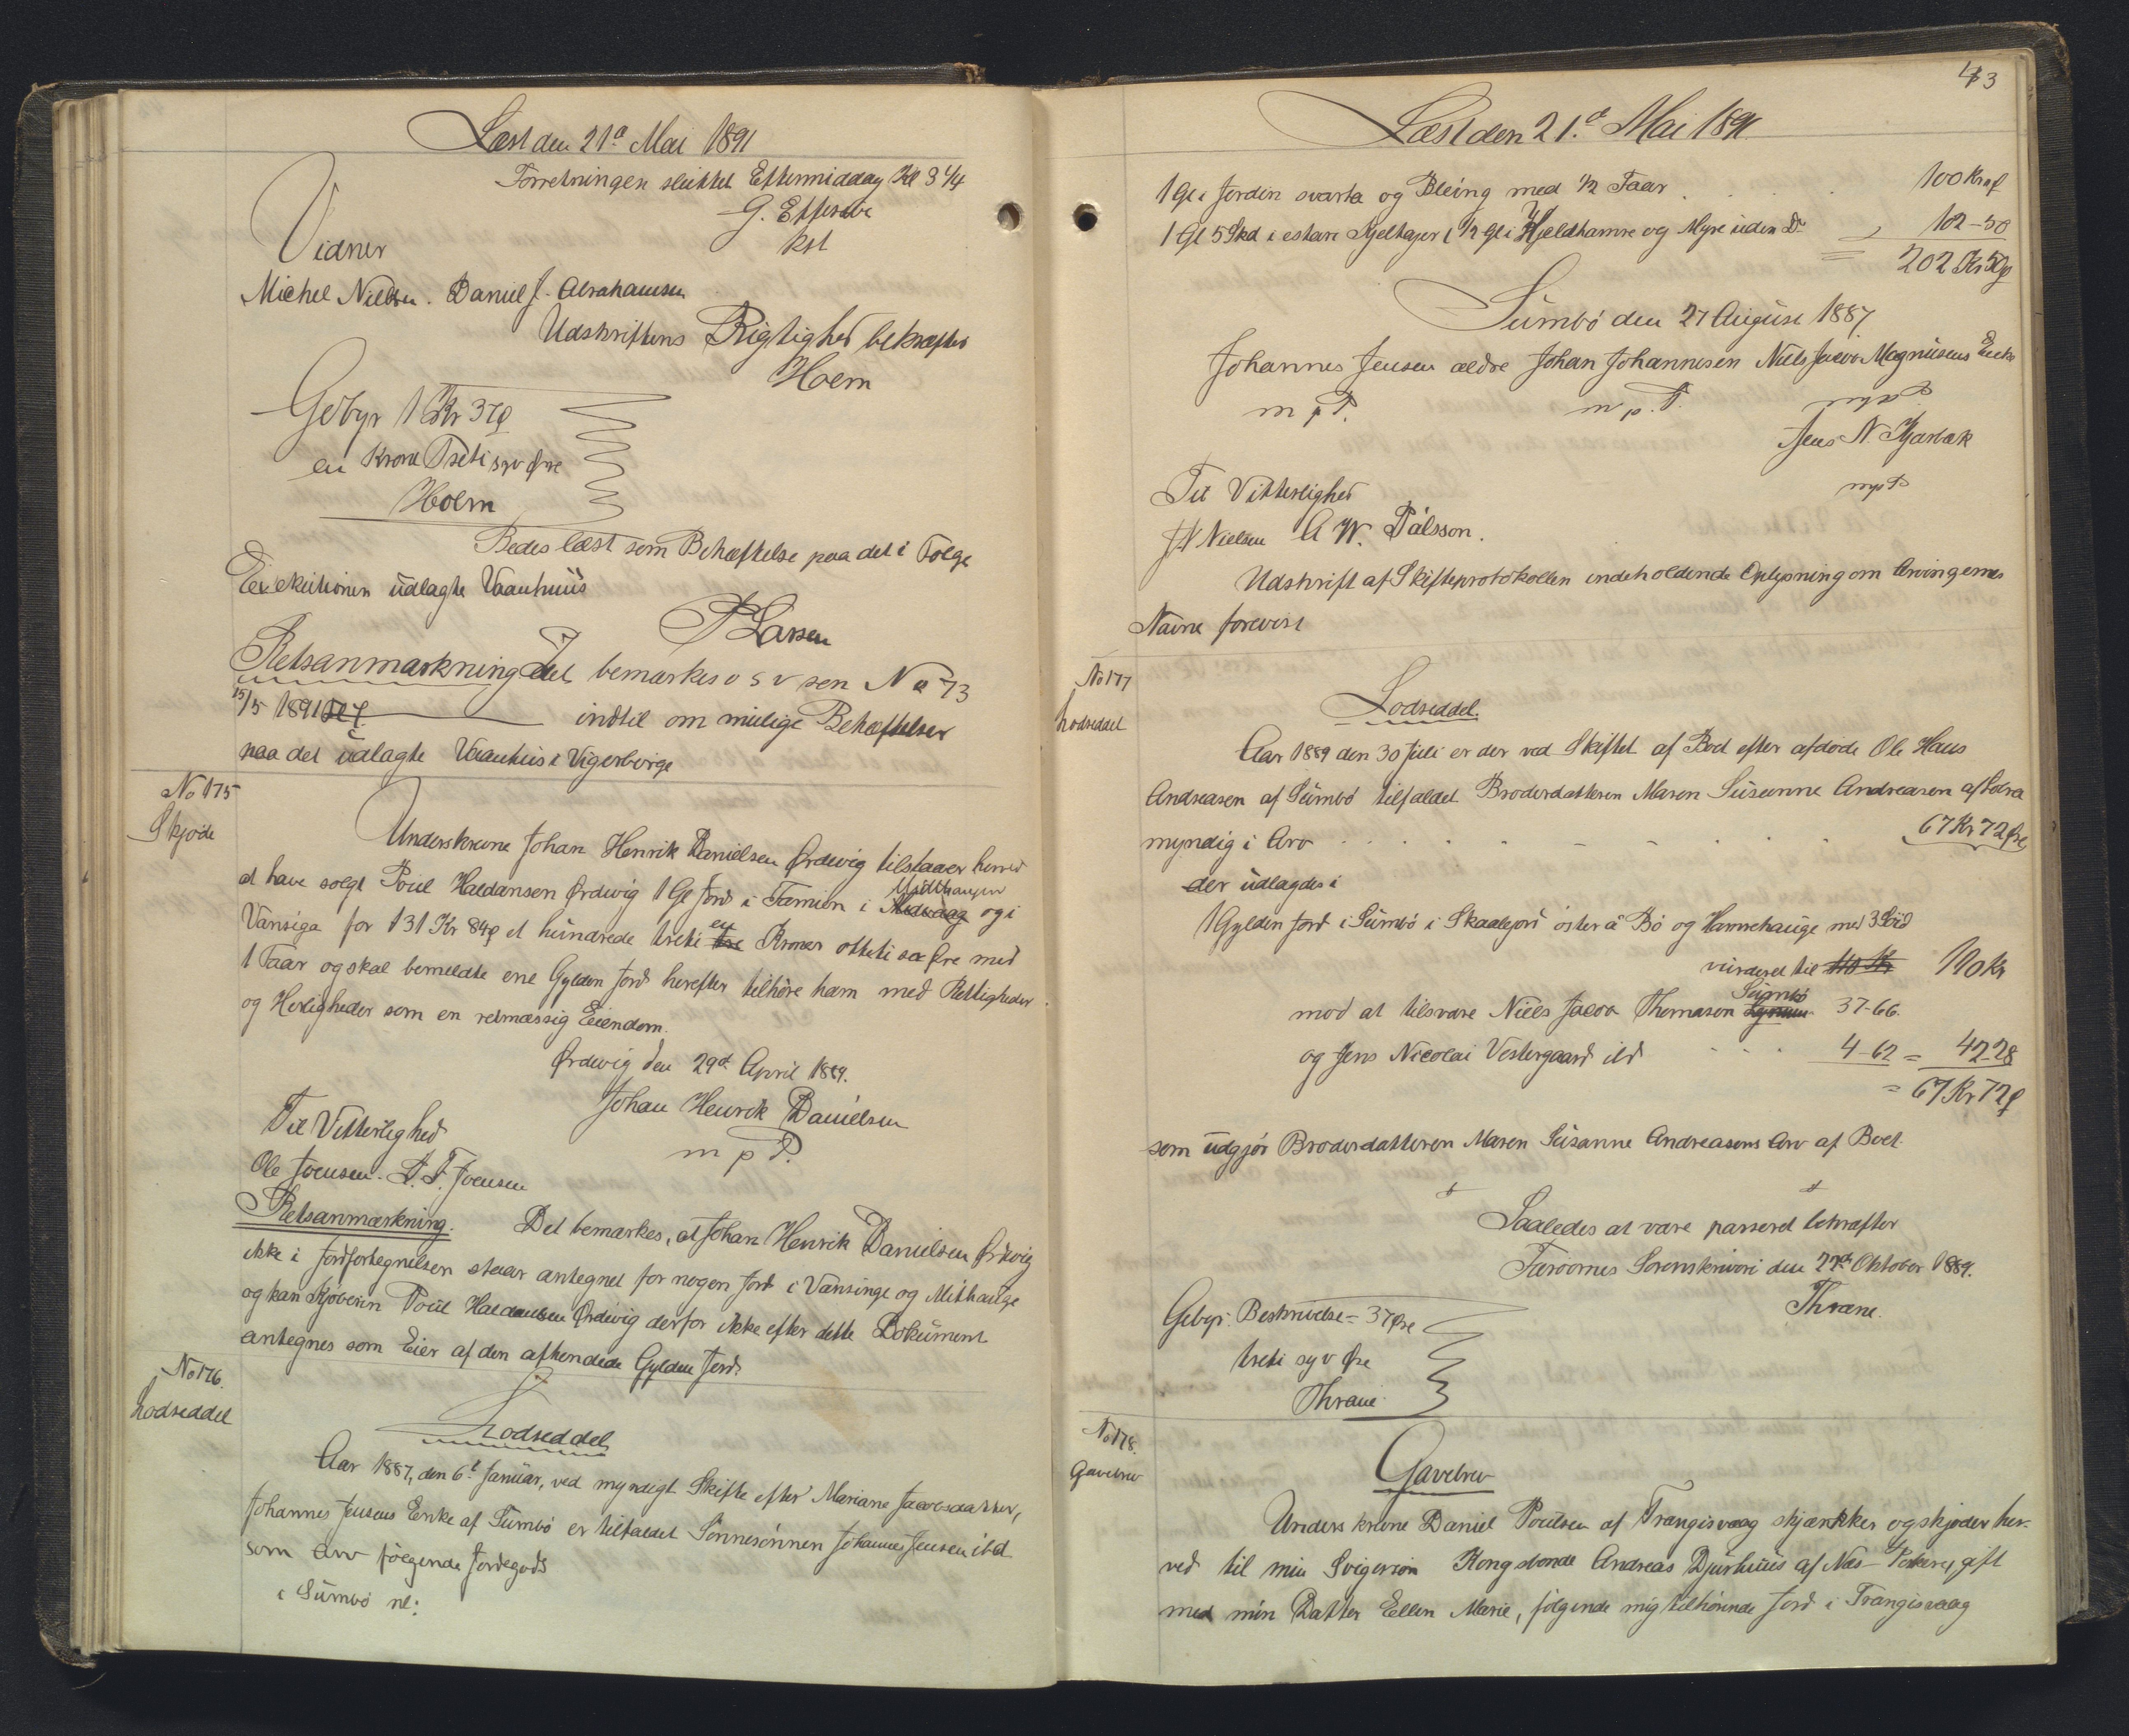 Læst den 21d Mai 1891
Forretningen sluttet Eftermiddag Kl 3 1/4
G. Effersøe
kst
Vidner
Michel Nielsen. Daniel J. Abrahamsen
Udskriftens Rigtighed bekræftes
Holm
Gebyr 1 Kr 37 ø
en Krone Treti syv Øre
Holm
Bedes læst som Behæftelse paa det i Følge
Exekutionen udlagte Vaanhuus
P Larsen
Retsanmærkning Det bemærkes o s v sen No 73
15/5 1891 indtil om mulige Behæftelser
paa det udlagte Vaanhus i Vigerborge
No 175
Skjøde
Underskrevne Johan Henrik Danielsen Ørdevig tilstaaer herved
at have solgt Poul Haldansen Ørdevig 1 Gl Jord i Famien i Midthaugen og i
Vansiga for 131 Kr 84 ø et hundrede treti en Kroner otteti Øre med
1 Faar og skal bemeldte ene Gylden Jord herefter tilhøre ham med Rettigheder
og Herligheder som en retmæssig Eiendom.
Ørdevig den 29d April 1889.
Johan Henrik Danielsen
m p P.
Til Vitterlighed
Ole Joensen. Joensen
Retsanmærkning. Det bemærkes, at Johan Henrik Danielsen Ørdevig
ikke i Jordfortegnelsen staar antegnet for nogen Jord i Vansinge og Mithauge
og kan Kjøberen Poul Haldansen Ørdevig derfor ikke efter dette Dokument
antegnes som Eier af den afhendede Gylden Jord.
No 176.
Lodseddel
Lodseddel
Aar 1887, den 6t Januar, ved myndigt Skifte efter Mariane Jacobsdatter,
Johannes Jensens Enke af Sumbø er tilfaldet Sønnesønnen Johannes Jensen ibd
som Arv følgende Jordegods
i Sumbø nl:
43
Læst den 21.d Mai 1891
1 Gl i Jordin svarta og Bleing med 1/2 Faar . . . 100 Kr ø
1 Gl 5 Skd i estare Gjeltajer (1/2 Gl i Hjeldhamre og Myre uden Do 102-50
= 202 Kr 50 ø
Sumbø den 27 August 1887
Johannes Jensen ældre Johan Johannesen Niels Jacob Magnusens Enke
m p P. m p. P. m p P
Jens N Kjærbæk
m p P
Til Vitterlighed
J N Nielsen A W. Pálsson.
Udskrift af Skifteprotokollen indeholdende Oplysning om Arvingernes
Navne forevist
No 177
Lodseddel
Lodseddel.
Aar 1889 den 30 Juli er der ved Skiftet af Bod efter afdøde Ole Hans
Andreasen af Sumbø tilfaldet Broderdatteren Maren Susanne Andreasen af Lobra
myndig i Arv . . . . . . 67 Kr 72 Øre
der udlagdes i
1 Gylden Jord i Sumbø i Skaalejord öster á Bö og Hamrehauge med 3 Lod
vurderet til 110 Kr 110 Kr
mod at tilsvare Niels Jacob Thomasen Sumbø 37-66.
og Jens Nicolai Vestergaard ibd . . . 4-62 = 42 28
= 67 Kr 72 ø
som udgjør Broderdatteren Maren Susanne Andreasens Arv af Boet.
Saaledes at være passeret bekræfter
Færøernes Sorenskriveri den 22d Oktober 1889.
Thrane.
Gebyr: Beskrivelse = 37 Øre
treti syv Øre
Thrane
No 178.
Gavebrev
Gavebrev
Underskrevne Daniel Poulsen af Trangisvaag skjænkker og skjøder her-
ved til min Svigersøn Kongsbonde Andreas Djurhuus af Næs gift
med min Datter Ellen Marie, følgende mig tilhørende Jord i Trangisvaag